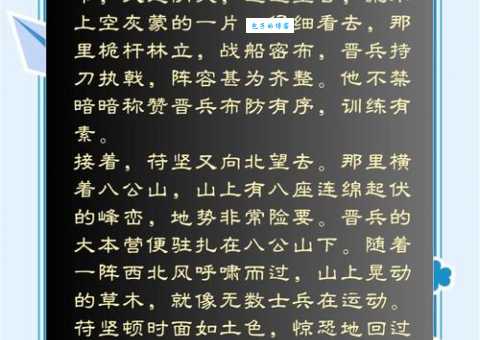 上空灰蒙的一片
细看去，那
里桅杆林立，战船密布，晋兵持
刀执戟，阵容甚为齐整。他不禁
暗暗称赞晋兵布防有序，训练有
素。
接着，苻坚又向北望去。那里横
着八公山，山上有八座连绵起伏
的峰峦，地势非常险要。晋兵的
大本营便驻扎在八公山下。随着
一阵西北风呼啸而过，山上晃动
的草木，就像无数士兵在运动。
苻坚顿时面如土色，惊恐地回过